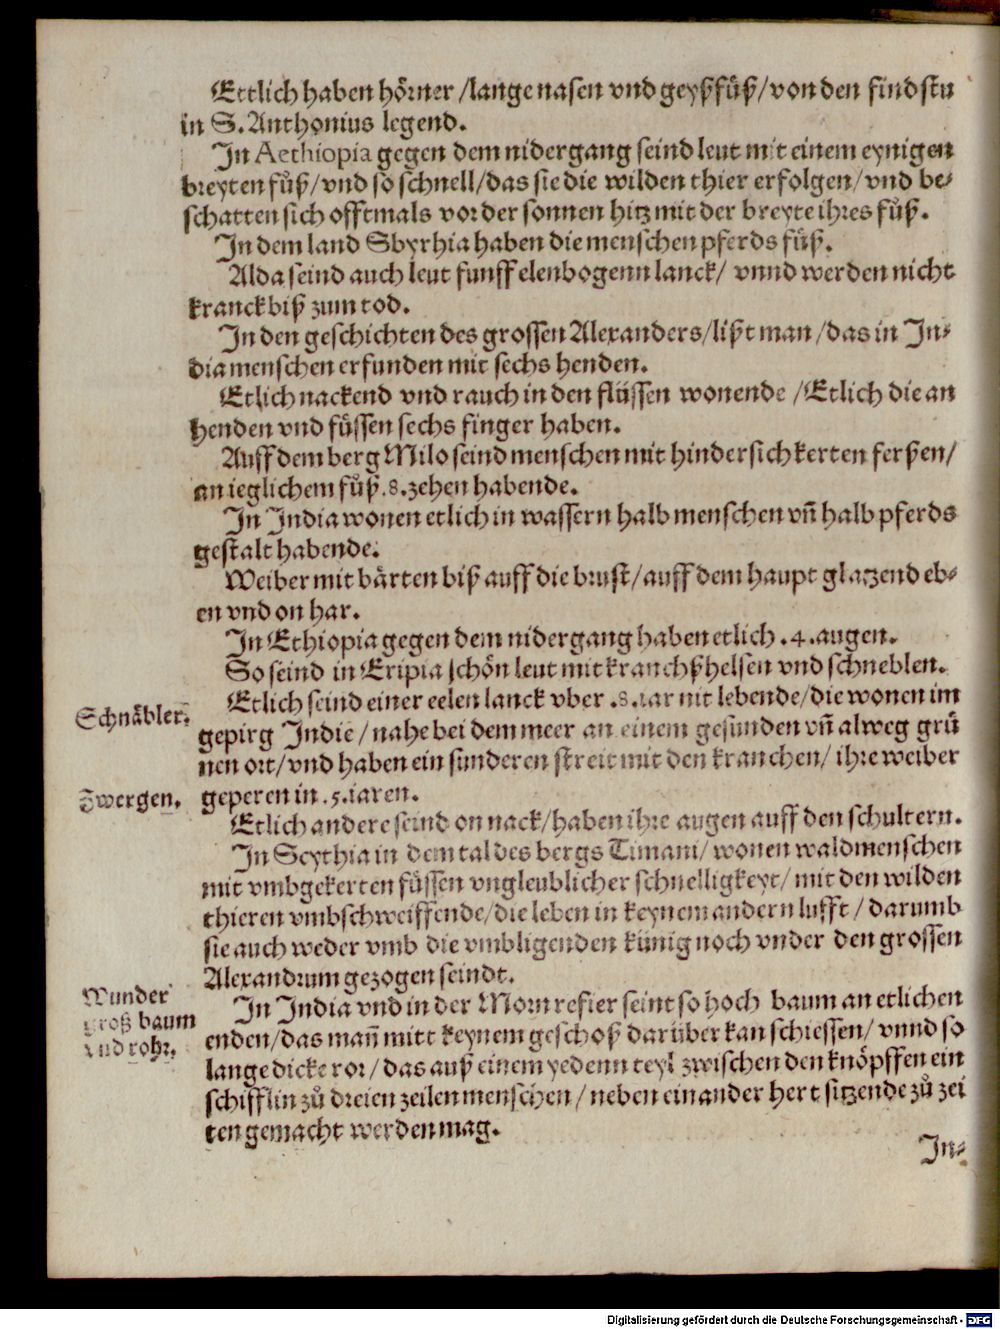 Ettlich haben hörner /lange nasen vnd geyßfüß/von den findstu
in S. Anthonius legend.
In Aethiopia gegen dem nidergang seind leut mit einem eynigen
breyten fůß/vnd so schnell/das sie die wilden thier erfolgen/vnd be-
schatten sich offtmals vor der sonnen hitz mit der breyte ihres fůß.
In dem land Sbyrhia haben die menschen pferds füß.
Alda seind auch leut funff elenbogenn lanck/ vnnd werden nicht
kranck biß zum tod.
In den geschichten des grossen Alexanders/lißt man /das in In-
dia menschen erfunden mit sechs henden.
Etlich nackend vnd rauch in den flüssen wonende /Etlich die an
henden vnd füssen sechs finger haben.
Auff dem berg Milo seind menschen mit hindersich kerten ferßen/
an ieglichem fůß .8. zehen habende.
In India wonen etlich in wassern halb menschen vñ halb pferds
gestalt habende.
Weiber mit bärten biß auff die brust/auff dem haupt glatzend eb-
en vnd on har.
In Ethiopia gegen dem nidergang haben etlich .4. augen.
So seind in Eripia schön leut mit kranchßhelsen vnd schneblen.
Schnäbler.
Etlich seind einer eelen lanck vber .8. iar nit lebende/die wonen im
gepirg Indie / nahe bei dem meer an einem gesunden vñ alweg grů
nen ort/vnd haben ein sunderen streit mit den kranchen/ ihre weiber
Zwergen.
geperen in .5. iaren.
Etlich andere seind on nack/haben ihre augen auff den schultern.
In Scythia in dem tal des bergs Timani/ wonen waldmenschen
mit vmbgekerten füssen vngleublicher schnelligkeyt/ mit den wilden
thieren vmbschweiffende/die leben in keynem andern lufft / darumb
sie auch weder vmb die vmbligenden künig noch vnder den grossen
Alexandrum gezogen seindt.
Wunder
groß baum
vnd rohr.
In India vnd in der Morn refier seint so hoch baum an etlichen
enden/das mañ mitt keynem geschoß darüber kan schiessen/ vnnd so
lange dicke ror/das auß einem yedenn teyl zwischen den knöpffen ein
schifflin zů dreien zeilen menschen / neben einander hert sitzende zů zei
ten gemacht werden mag.
In-
Digitalisierung gefördert durch die Deutsche Forschungsgemeinschaft - DFG